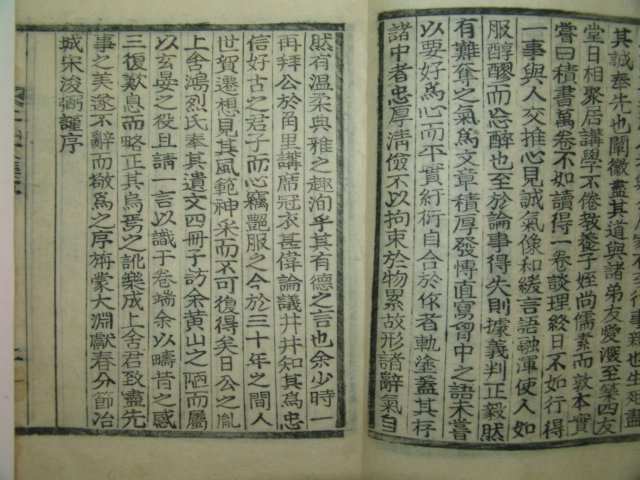 其誠奉先也闡徽盡其道與諸弟友愛湛至築四友
堂日相聚居講學不倦教養子姪尚儒素而敦本實
嘗曰積書萬卷不如讀得一卷談理終日不如行得
一事與人交推心見誠氣像和緩言語融渾使人如
服醇醪而忘醉也至於論事得失則據義判正毅然
有難奪之氣爲文章積厚發慱直寫胷中之語未甞
以要好爲心而平實紆衍自合於作者軌塗蓋其存
諸中者忠厚淸儉不以拘束於物累故形諸辭氣自
然有溫柔典雅之趣洵乎其有德之言也余少時一
再拜公於角里講席冠衣甚偉論議井井知其爲忠
信好古之君子而心竊艶服之今於三十年之間人
世貿遷想見其風範神采而不可復得矣日公之胤
上舍鴻烈氏奉其遺文四冊子訪余黃山之陋而屬
以玄晏之役且請一言以識于卷端余以疇昔之感
三復歎息而略正其烏焉之訛樂成上舍君致盡先
事之美遂不辭而敬爲之序旃蒙大淵獻春分節冶
城宋浚弼謹序